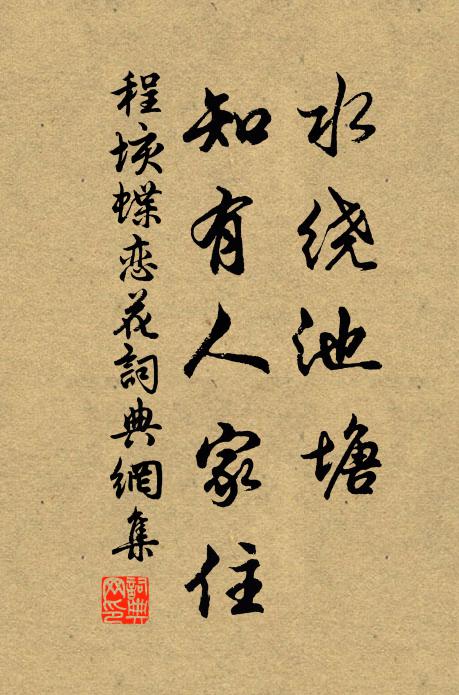 水绕池塘
知有人家住
程垓蝶恋花詞典網集
詞典网印